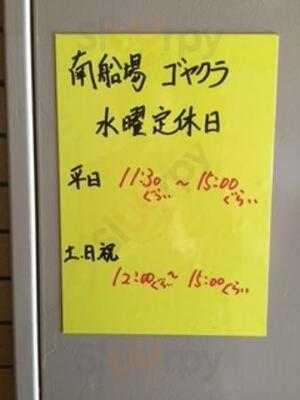 南船場 ゴヤクラ
水曜定休日
平日 11:30ぐらい〜15:00ぐらい
土.日祝
12:00ぐらい〜15:00ぐらい